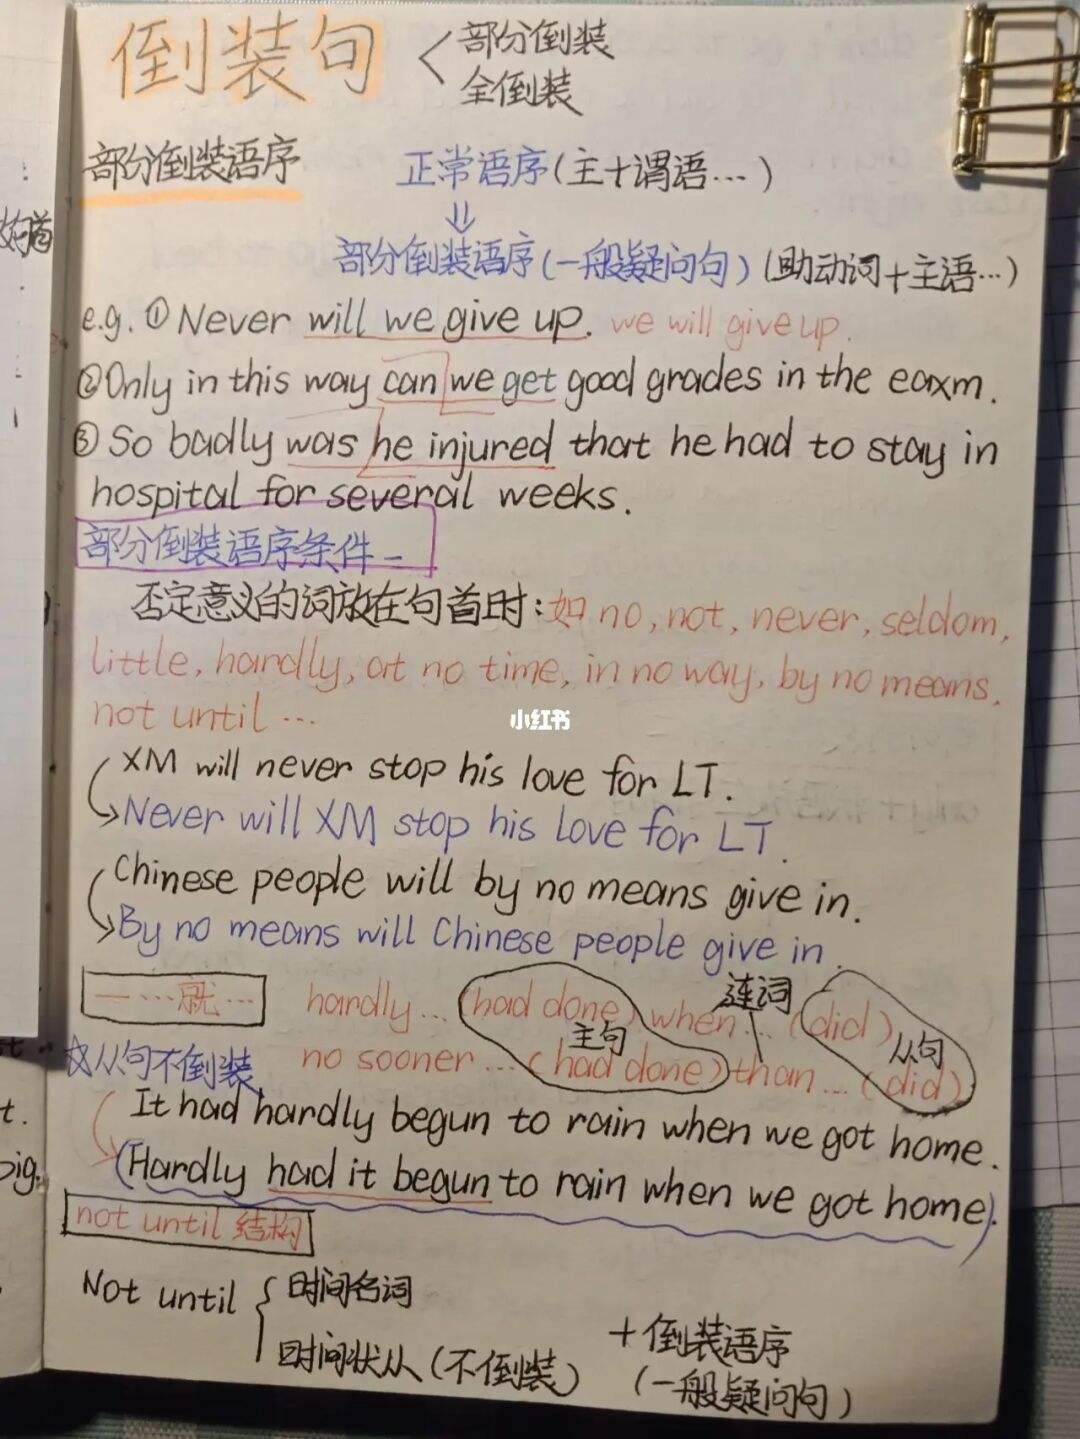 倒装句
部分倒装
全倒装
部分倒装语序 正常语序(主+谓语…)
⇓
部分倒装语序(一般疑问句)(助动词+主语…)
e.g. ①Never will we give up. we will give up.
②Only in this way can we get good grades in the eaxm.
③So badly was he injured that he had to stay in
hospital for several weeks.
部分倒装语序条件一
否定意义的词放在句首时:如no, not, never, seldom,
little, hardly, at no time, in no way, by no means,
not until …
小红书
XM will never stop his love for LT.
Never will XM stop his love for LT.
Chinese people will by no means give in.
By no means will Chinese people give in.
一…就… hardly…(had done) when…(did)
连词
主句 从句
no sooner …(had done) than…(did)
从句不倒装
It had hardly begun to rain when we got home.
(Hardly had it begun to rain when we got home).
not until 结构
Not until { 时间名词
时间状从(不倒装)
+倒装语序
(一般疑问句)